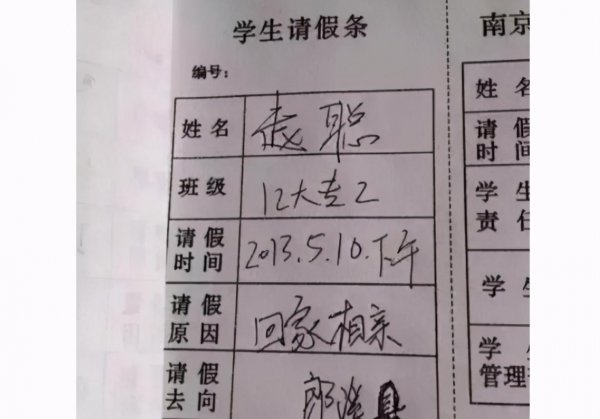 学生请假条
南京
编号：
姓名 袁聪
班级 12大专2
请假时间 2013.5.10.下午
请假原因 回家相亲
请假去向 郎溪县
姓名
请假时间
学生
责任
学生
学生
管理